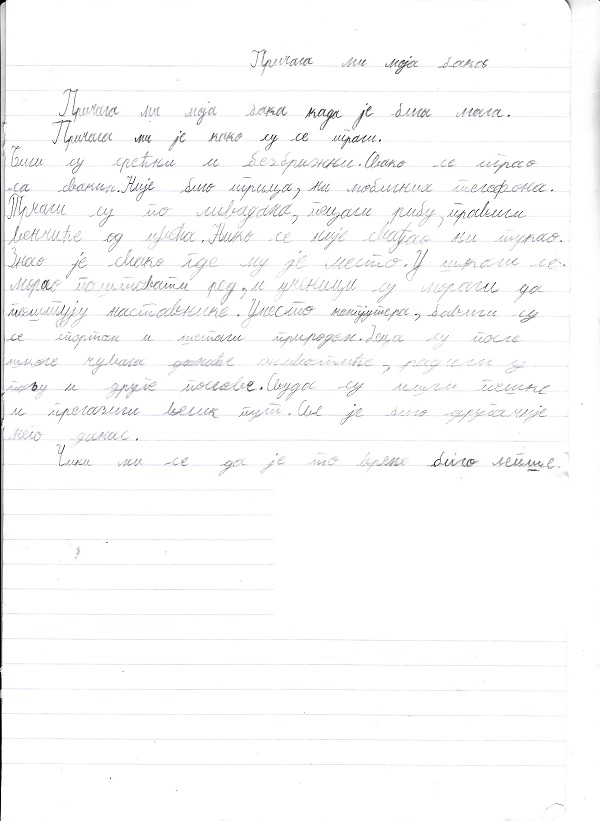 Причала ми моја бака
Причала ми моја бака када је била мала.
Причала ми је како су се играли.
Били су срећни и безбрижни. Свако се играо
са сваким. Није било трица, ни мобилних телефона.
Трчали су по ливадама, пецали рибу, правили
венчиће од цвећа. Нико се није свађао ни тукао.
Знао је свако где му је место. У школи се
морао поштовати ред, и ученици су морали да
поштују наставнике. Уместо компјутера, бавили су
се спортом и шетали природом. Деца су после
школе чувала домаће животиње, радили у
пољу и друге послове. Свуда су ишли пешке
и прелазили велик пут. Све је било другачије
него данас.
Чини ми се да је то време било лепше.